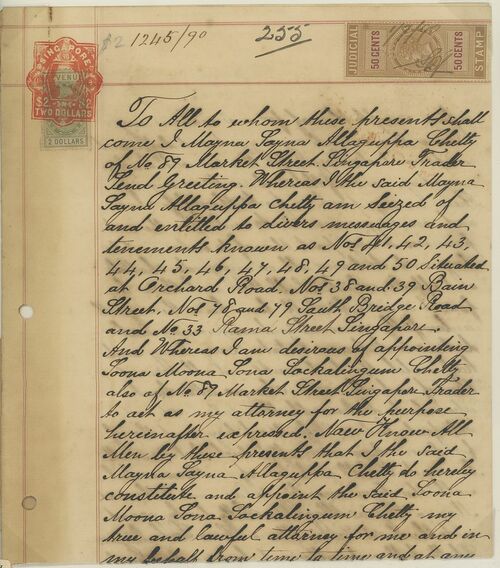 $2 1245/90
255
JUDICIAL
50 CENTS
50 CENTS
STAMP
SINGAPORE
REVENUE
$2 $2
TWO DOLLARS
2 DOLLARS
To All to whom these presents shall
come I Mayna Sayna Allaguppa Chetty
of No 87 Market Street Singapore Trader
Send Greeting. Whereas I the said Mayna
Sayna Allaguppa Chetty am seized of
and entitled to divers messuages and
tenements known as Nos 41, 42, 43,
44, 45, 46, 47, 48, 49 and 50 Situated
at Orchard Road. Nos 38 and 39 Bain
Street, Nos 78 and 79 South Bridge Road
and No 33 Rama Street Singapore.
And Whereas I am desirous of appointing
Soona Moona Sona Sockalingum Chetty
also of No 87 Market Street Singapore Trader
to act as my attorney for the purpose
hereinafter expressed. Now Know All
Men by these presents that I the said
Mayna Sayna Allaguppa Chetty do hereby
constitute and appoint the said Soona
Moona Sona Sockalingum Chetty my
true and lawful attorney for me and in
my behalf from time to time and at any